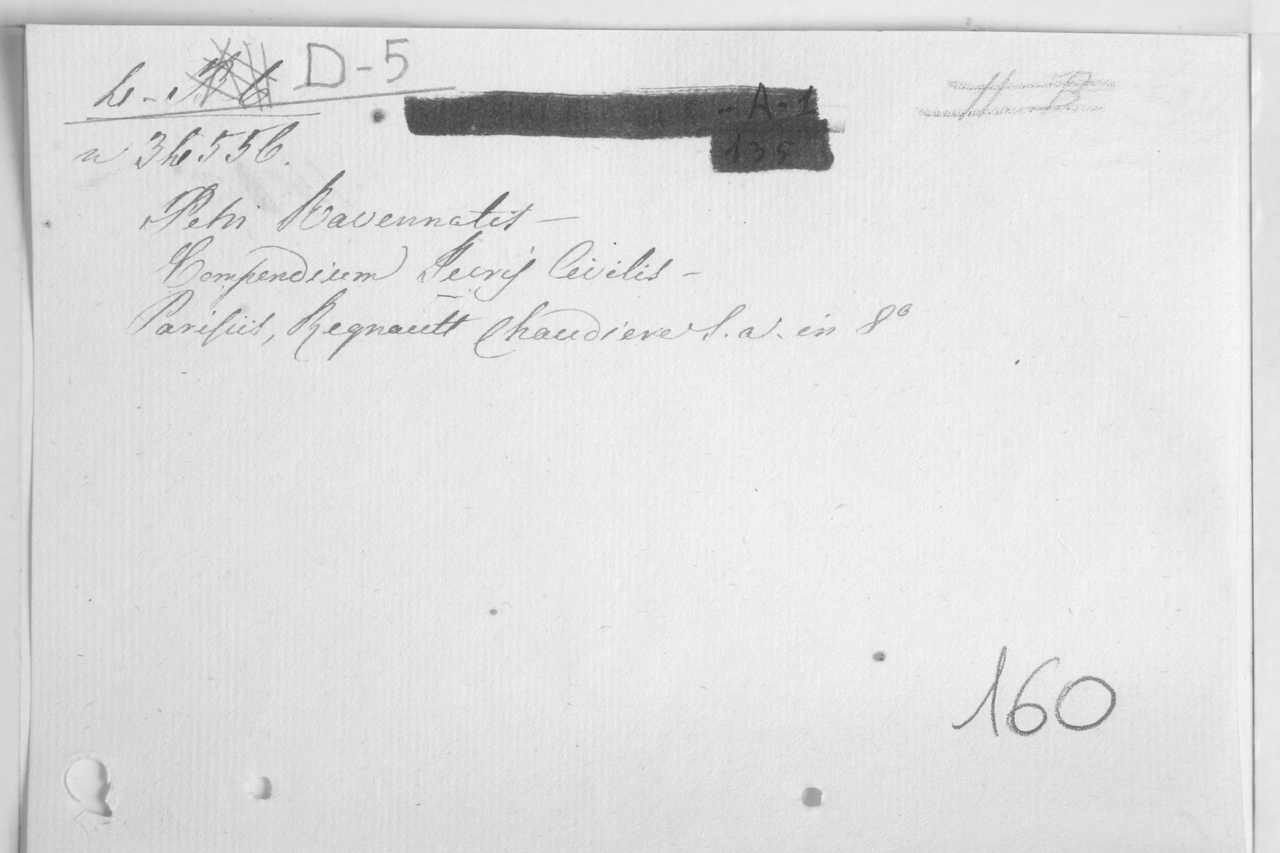 D-5
-A-1
135
n 34556.
Petri Ravennatis –
Compendium Juris Civilis –
Parisiis, Regnault Chaudiere S. a. in 8°
160